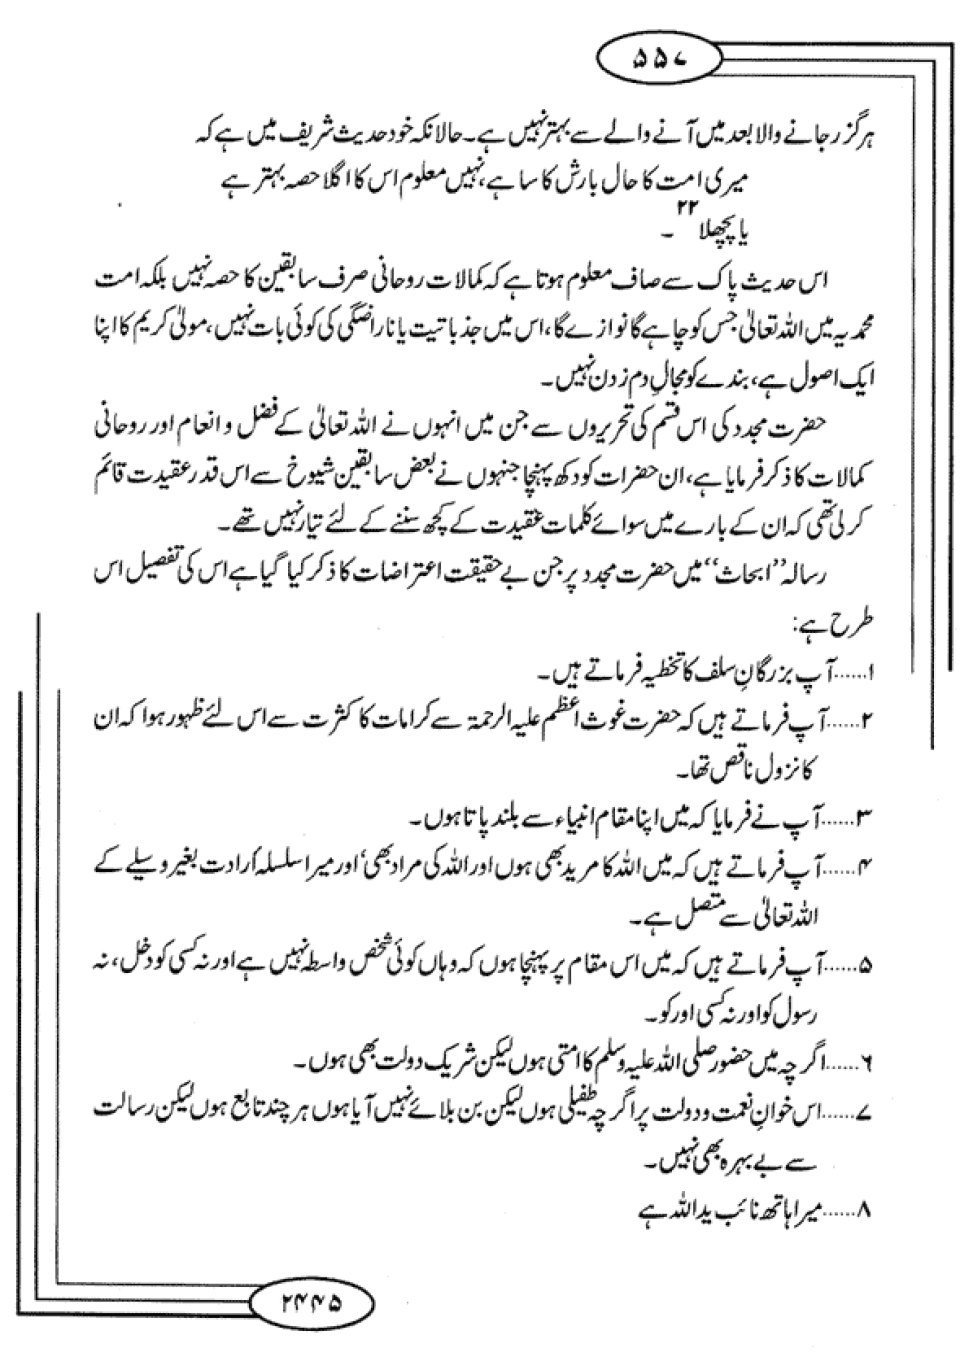 ۵۵۷
ہرگز رجانے والا بعد میں آنے والے سے بہتر نہیں ہے۔ حالانکہ خود حدیث شریف میں ہے کہ
میری امت کا حال بارش کا سا ہے، نہیں معلوم اس کا اگلا حصہ بہتر ہے
یا پچھلا ۲۲۔
اس حدیث پاک سے صاف معلوم ہوتا ہے کہ کمالات روحانی صرف سابقین کا حصہ نہیں بلکہ امت
محمدیہ میں اللہ تعالیٰ جس کو چاہے گا نوازے گا، اس میں جذباتیت یا ناراضگی کی کوئی بات نہیں، مولیٰ کریم کا اپنا
ایک اصول ہے، بندے کو مجالِ دم زدن نہیں۔
حضرت مجدد کی اس قسم کی تحریروں سے جن میں انہوں نے اللہ تعالیٰ کے فضل و انعام اور روحانی
کمالات کا ذکر فرمایا ہے، ان حضرات کو دکھ پہنچا جنہوں نے بعض سابقین شیوخ سے اس قدر عقیدت قائم
کر لی تھی کہ ان کے بارے میں سوائے کلمات عقیدت کے کچھ سننے کے لئے تیار نہیں تھے۔
رسالہ ’’ابحاث‘‘ میں حضرت مجدد پر جن بے حقیقت اعتراضات کا ذکر کیا گیا ہے اس کی تفصیل اس
طرح ہے:
۱......آپ بزرگانِ سلف کا تخطیہ فرماتے ہیں۔
۲......آپ فرماتے ہیں کہ حضرت غوث اعظم علیہ الرحمۃ سے کرامات کا کثرت سے اس لئے ظہور ہوا کہ ان
کا نزول ناقص تھا۔
۳......آپ نے فرمایا کہ میں اپنا مقام انبیاء سے بلند پاتا ہوں۔
۴......آپ فرماتے ہیں کہ میں اللہ کا مرید بھی ہوں اور اللہ کی مراد بھی‘ اور میرا سلسلۂ ارادت بغیر وسیلے کے
اللہ تعالیٰ سے متصل ہے۔
۵......آپ فرماتے ہیں کہ میں اس مقام پر پہنچا ہوں کہ وہاں کوئی شخص واسطہ نہیں ہے اور نہ کسی کو دخل، نہ
رسول کو اور نہ کسی اور کو۔
۶......اگرچہ میں حضور صلی اللہ علیہ وسلم کا امتی ہوں لیکن شریک دولت بھی ہوں۔
۷......اس خوانِ نعمت و دولت پر اگرچہ طفیلی ہوں لیکن بن بلائے نہیں آیا ہوں ہر چند تابع ہوں لیکن رسالت
سے بے بہرہ بھی نہیں۔
۸......میرا ہاتھ نائب ید اللہ ہے
۲۴۴۵